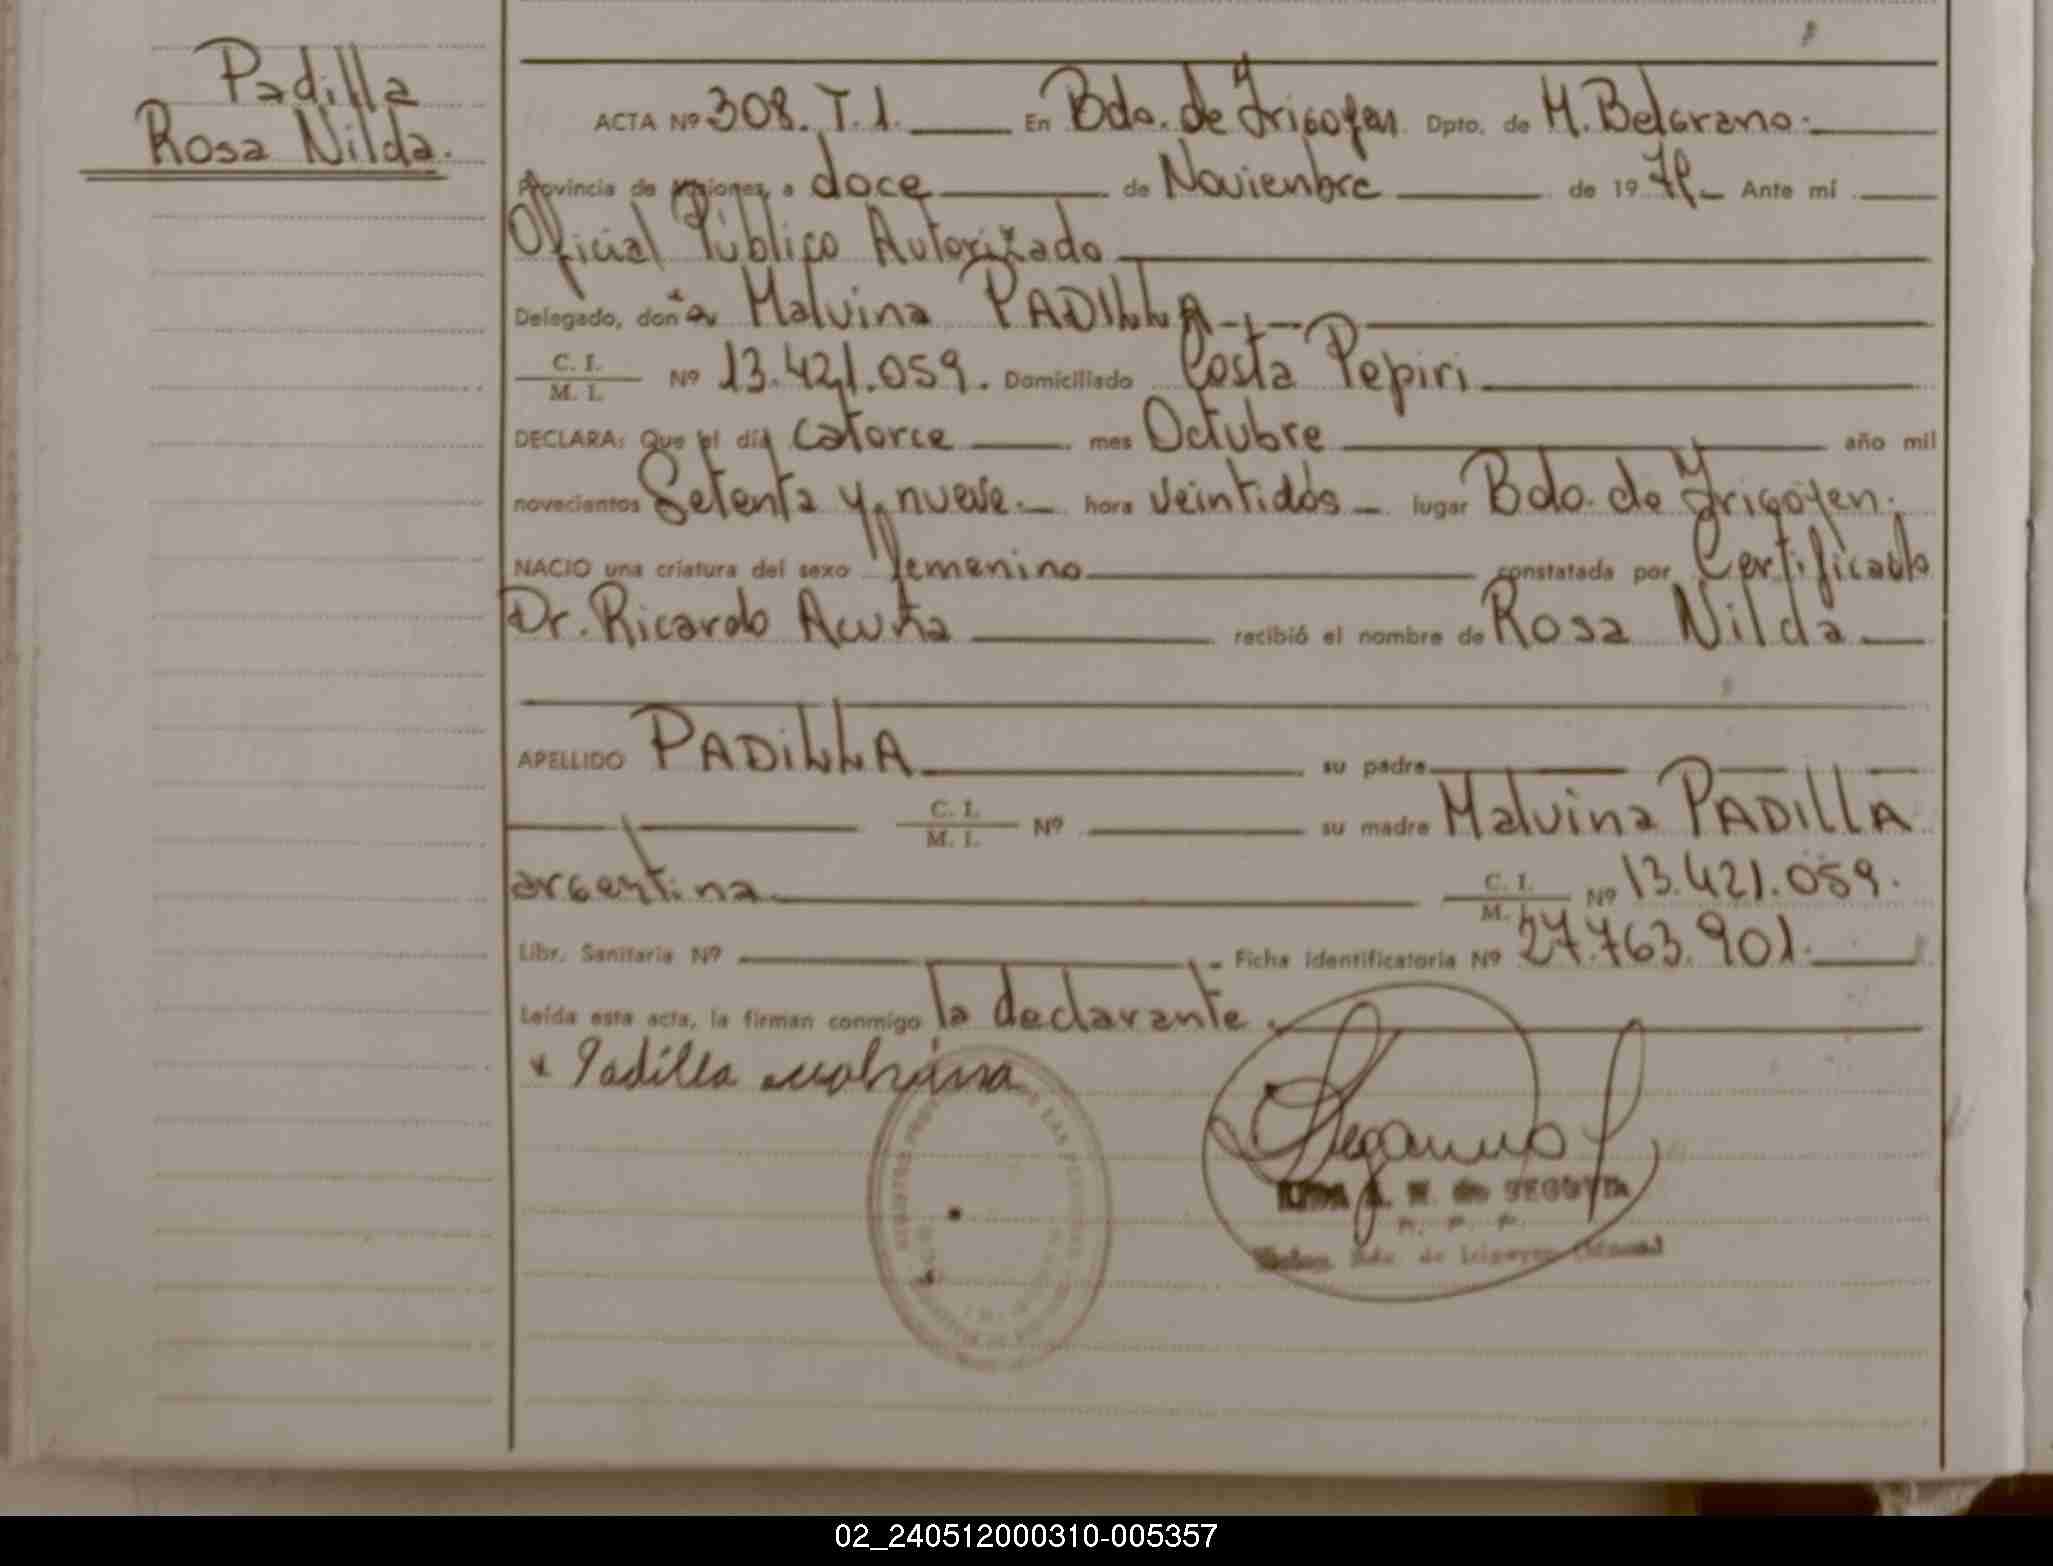 Padilla
Rosa Nilda.
ACTA Nº 308. T. 1. En Bdo. de Yrigoyen Dpto. de M. Belgrano.
Provincia de Misiones, a doce de Noviembre de 1979 Ante mí
Oficial Público Autorizado
Delegado, doña Malvina PADILLA
C. I.
M. I. Nº 13.421.059. Domiciliado Costa Pepiri
DECLARA: Que el día catorce mes Octubre año mil
novecientos Setenta y nueve. hora veintidós lugar Bdo. de Yrigoyen.
NACIO una criatura del sexo femenino constatada por Certificado
Dr. Ricardo Acuña recibió el nombre de Rosa Nilda
APELLIDO PADILLA su padre
C. I.
M. I. Nº su madre Malvina PADILLA
argentina C. I.
M. Nº 13.421.059.
Libr. Sanitaria Nº Ficha identificatoria Nº 27.763.901.
Leída esta acta, la firman conmigo la declarante.
x Padilla malvina
02_240512000310-005357